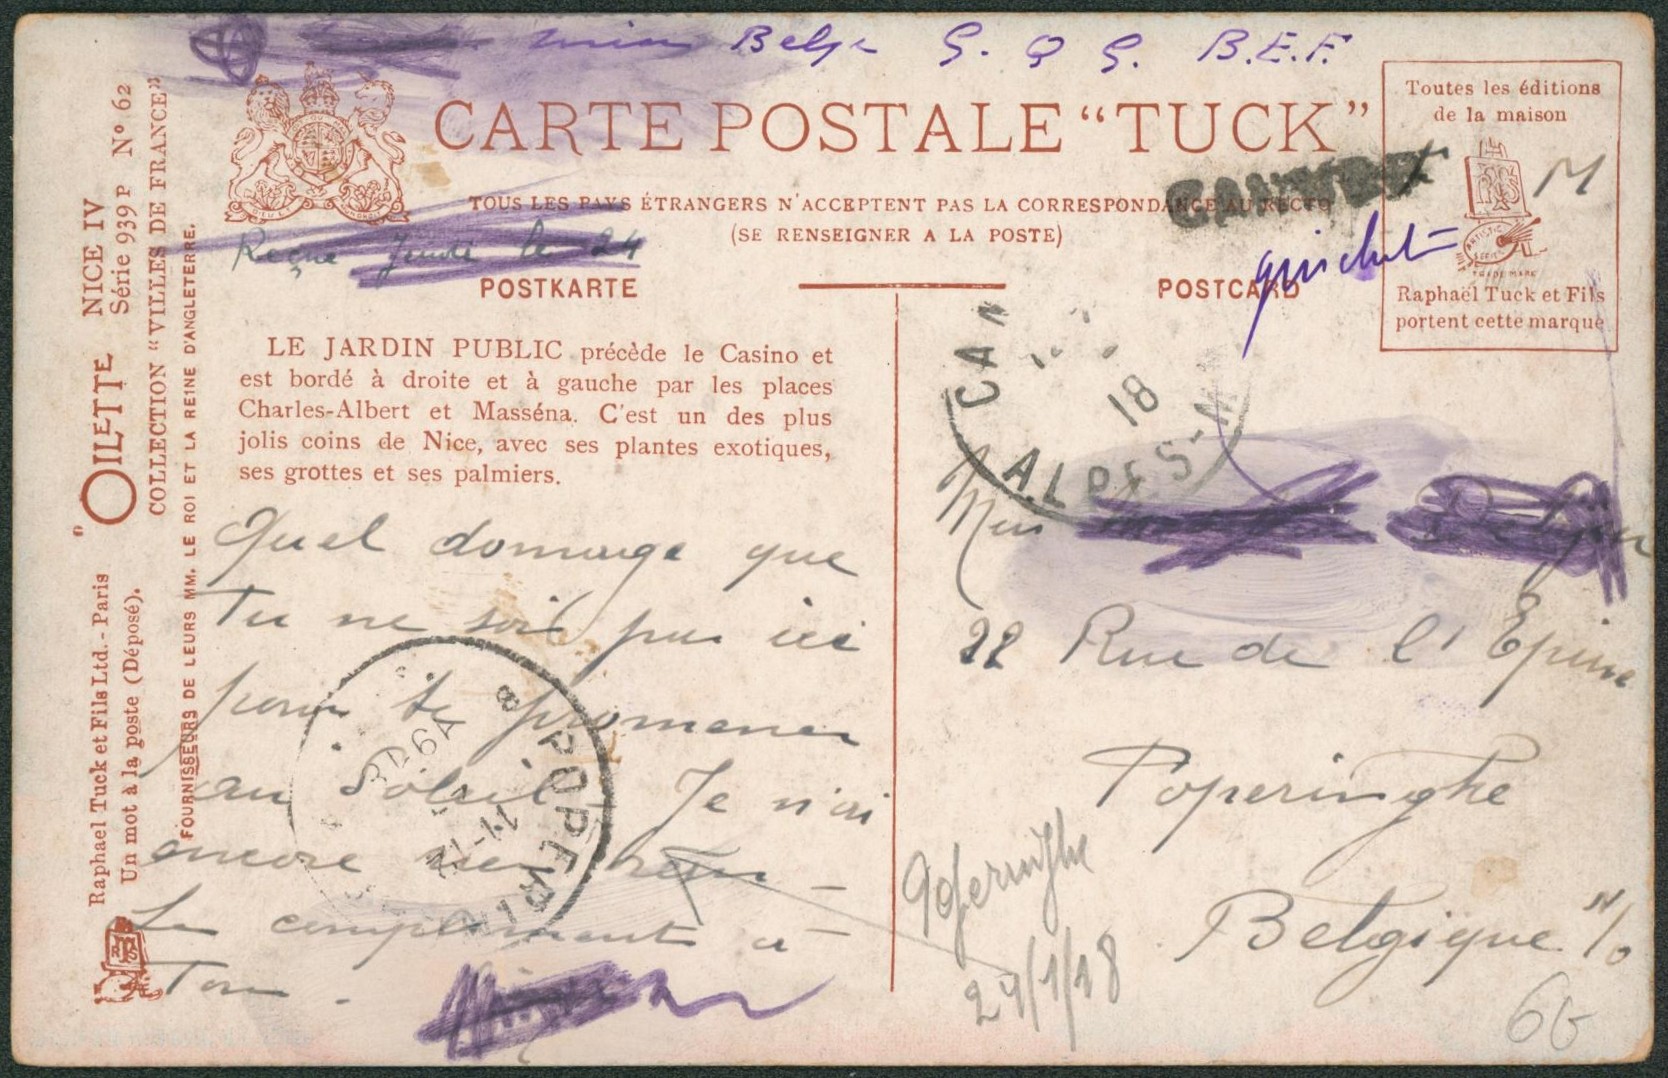 Belge G. Q G. B.E.F.
CARTE POSTALE “TUCK”
TOUS LES PAYS ÉTRANGERS N'ACCEPTENT PAS LA CORRESPONDANCE AU RECTO
(SE RENSEIGNER A LA POSTE)
Reçue Jeudi le 24
POSTKARTE
POSTCARD
guichet
Toutes les éditions
de la maison
M
Raphaël Tuck et Fils
portent cette marque
“OILETTE” NICE IV
Série 939 P Nº 62
COLLECTION “VILLES DE FRANCE”
Raphael Tuck et Fils Ltd. - Paris
Un mot à la poste (Déposé).
FOURNISSEURS DE LEURS MM. LE ROI ET LA REINE D'ANGLETERRE.
LE JARDIN PUBLIC précède le Casino et
est bordé à droite et à gauche par les places
Charles-Albert et Masséna. C'est un des plus
jolis coins de Nice, avec ses plantes exotiques,
ses grottes et ses palmiers.
Quel dommage que
tu ne soit pas ici
pour te promener
au Soleil. Je n'ai
encore rien
Le compliment a
Ton.
POPERI
11-12
18
ALPES-M
22 Rue de l'Epine
Poperinghe
Belgique
Poperinghe
24/1/18
66